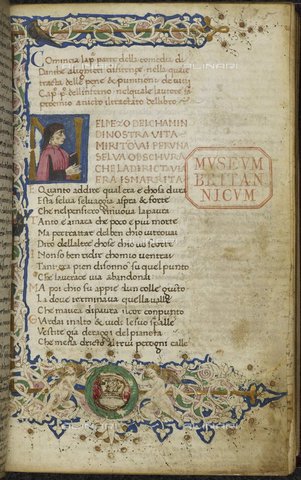 Comincia la p̄ parte della comedia di
Danthe alighieri
tracta delle pene & punimenti de uitii
proemio a tucto el tractato del libro
EL MEZO DEL CHAMIN
DI NOSTRA VITA
MI RITOVAI PER VNA
SELVA OBSCHVRA
CHE LA DIRICTA VI
ERA ISMARRITA
MVSEVM
BRITAN
NICVM
E Quanto a ddire qual era e chosa dura
Esta selua seluagia aspra & forte
Che nel pensiero rinuoua la paura
Tanto e amara che poco e piu morte
Ma per trattar del ben chio ui trouai
Diro dellaltre chose chio uo scorte
Non so ben ridir chomio uentrai
Tantera pien di sonno su quel punto
Che la uerace uia abandonai
Ma poi chio fu appie dun colle giunto
La doue terminaua quella ualle
Che mauea di paura il cor conpunto
Guardai in alto & uidi le sue spalle
Vestite gia de raggi del pianeta
Che mena dricto altrui per ogni calle
ALINARI